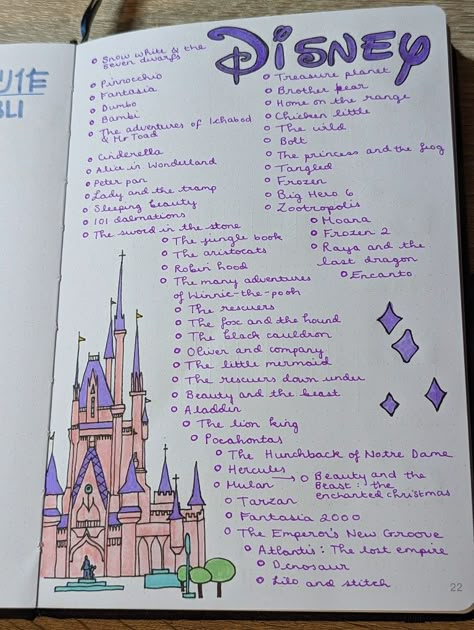 DISNEY
Snow white & the
seven dwarfs
Pinnocchio
Fantasia
Dumbo
Bambi
The adventures of Ichabod
& Mr Toad
Cinderella
Alice in Wonderland
Peter pan
Lady and the tramp
Sleeping beauty
101 dalmations
The sword in the stone
The jungle book
The aristocats
Robin hood
The many adventures
of Winnie-the-pooh
The rescuers
The fox and the hound
The black cauldron
Oliver and company
The little mermaid
The rescuers down under
Beauty and the beast
Aladdin
The lion king
Pocahontas
The Hunchback of Notre Dame
Hercules
Mulan
Beauty and the
Beast: the
enchanted christmas
Tarzan
Fantasia 2000
The Emperor's New Groove
Atlantis: The lost empire
Dinosaur
Lilo and stitch
Treasure planet
Brother bear
Home on the range
Chicken little
The wild
Bolt
The princess and the frog
Tangled
Frozen
Big Hero 6
Zootropolis
Moana
Frozen 2
Raya and the
last dragon
Encanto
22